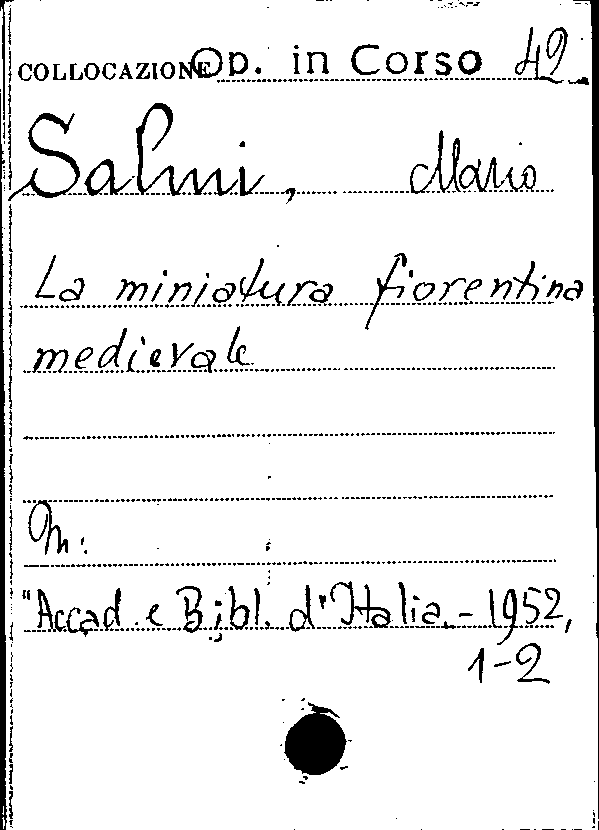 COLLOCAZIONE Op. in Corso 42
Salmi, Mario
La miniatura fiorentina
medievale
In:
"Accad. e Bibl. d'Italia. - 1952,
1-2